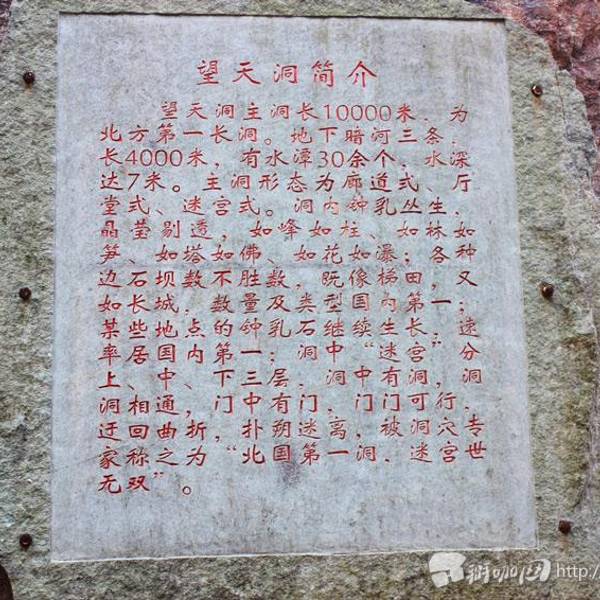 望天洞简介
望天洞主洞长10000米，为
北方第一长洞。地下暗河三条，
长4000米，有水潭30余个，水深
达7米。主洞形态为廊道式、厅
堂式、迷宫式。洞内钟乳丛生，
晶莹剔透，如峰如柱、如林如
笋、如塔如佛、如花如瀑；各种
边石坝数不胜数，既像梯田，又
如长城，数量及类型国内第一；
某些地点的钟乳石继续生长，速
率居国内第一；洞中“迷宫”分
上、中、下三层，洞中有洞，洞
洞相通，门中有门，门门可行，
迂回曲折，扑朔迷离，被洞穴专
家称之为“北国第一洞，迷宫世
无双”。
http://